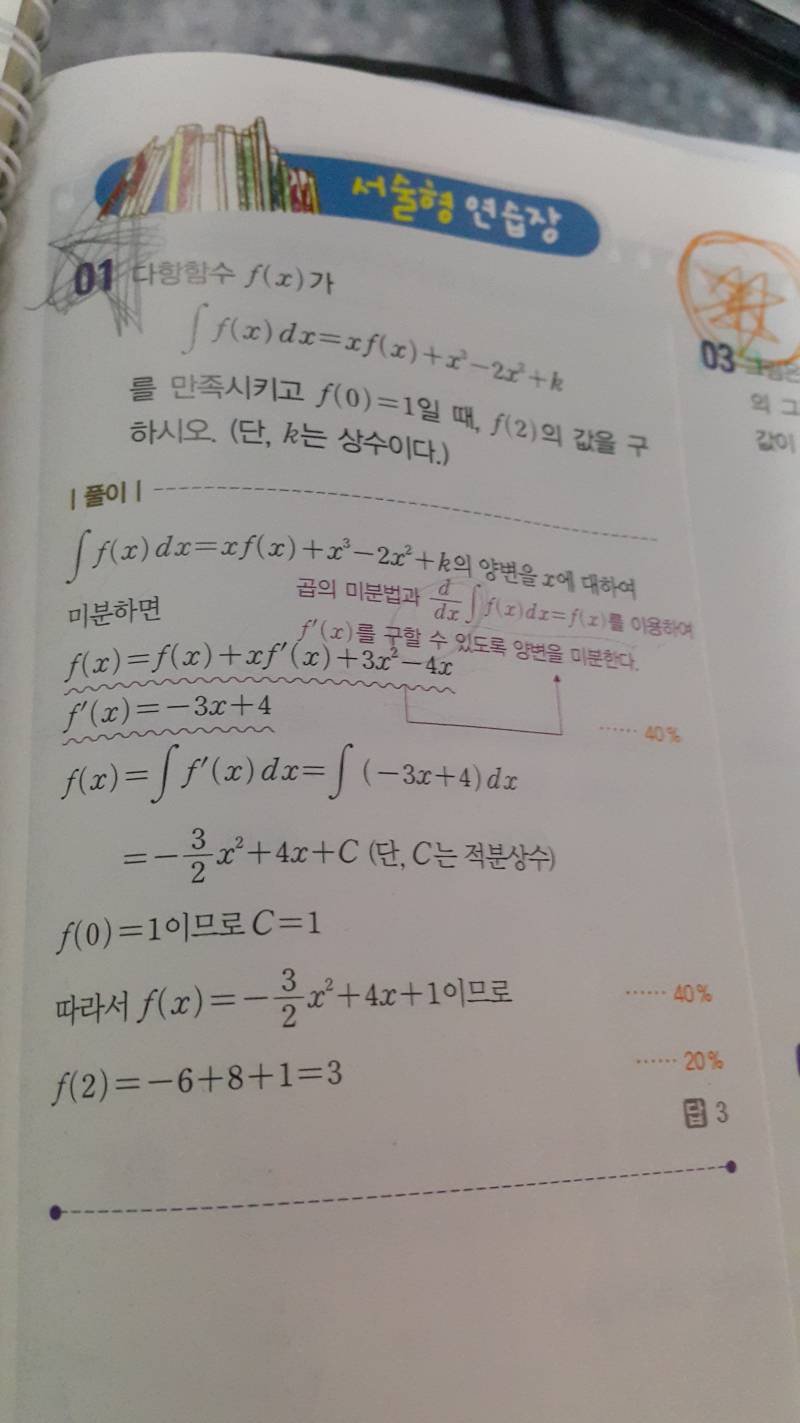 서술형 연습장
01 다항함수 f(x)가
∫f(x)dx=xf(x)+x³-2x²+k
를 만족시키고 f(0)=1일 때, f(2)의 값을 구
하시오. (단, k는 상수이다.)
|풀이|
∫f(x)dx=xf(x)+x³-2x²+k의 양변을 x에 대하여
미분하면
곱의 미분법과 d/dx∫f(x)dx=f(x)를 이용하여
f′(x)를 구할 수 있도록 양변을 미분한다.
f(x)=f(x)+xf′(x)+3x²-4x
f′(x)=-3x+4
…… 40%
f(x)=∫f′(x)dx=∫(-3x+4)dx
=-3/2x²+4x+C (단, C는 적분상수)
f(0)=1이므로 C=1
따라서 f(x)=-3/2x²+4x+1이므로
…… 40%
f(2)=-6+8+1=3
…… 20%
답 3
03
의 그
값이